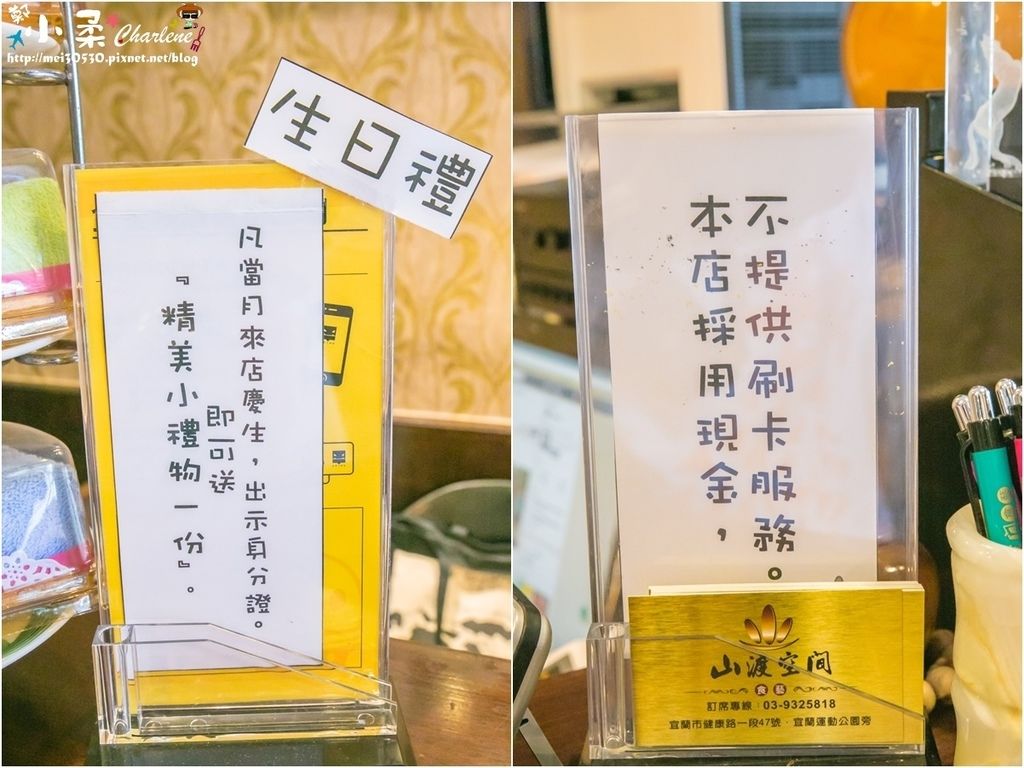 小柔 Charlene
http://mei30530.pixnet.net/blog
生日禮
凡當月來店慶生，出示身分證。
即可送
『精美小禮物一份』。
本店採用現金，
不提供刷卡服務。
山渡空間
食藝
訂席專線：03-9325818
宜蘭市健康路一段47號．宜蘭運動公園旁